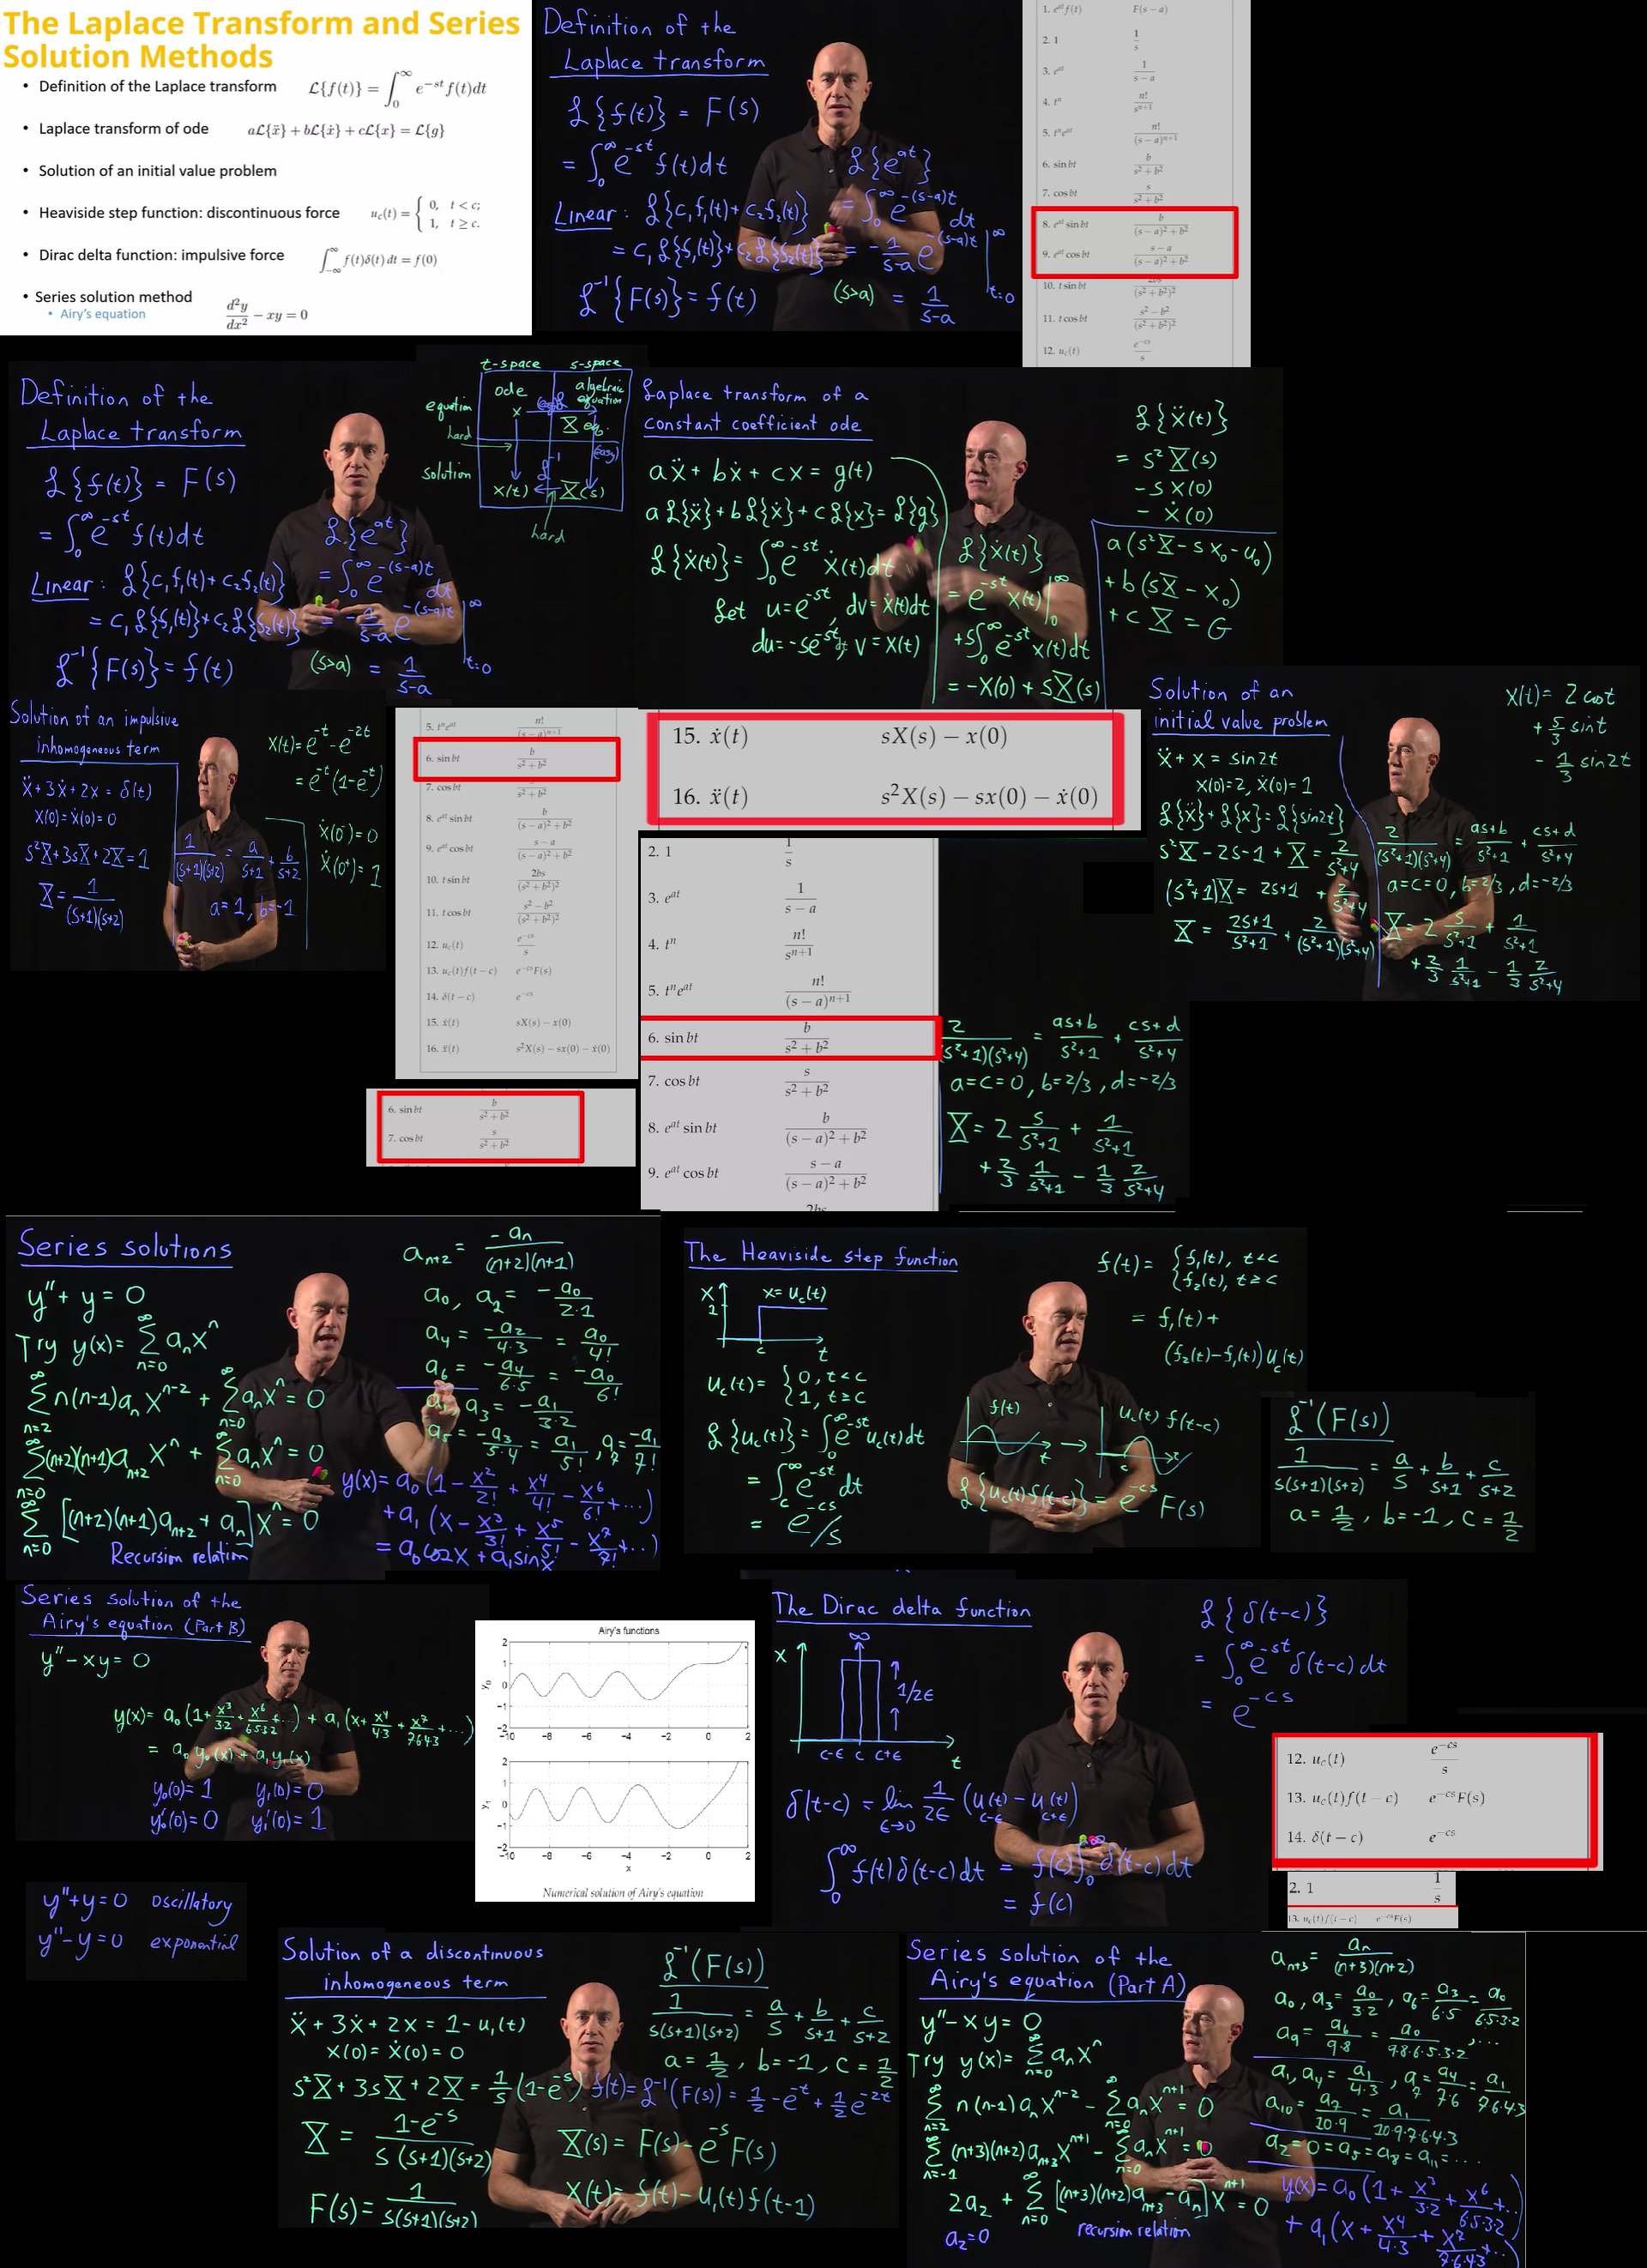 The Laplace Transform and Series
Solution Methods
• Definition of the Laplace transform ℒ{f(t)} = ∫₀^∞ e^{-st} f(t)dt
• Laplace transform of ode aℒ{ẍ} + bℒ{ẋ} + cℒ{x} = ℒ{g}
• Solution of an initial value problem
• Heaviside step function: discontinuous force u_c(t) = { 0, t < c; 1, t ≥ c.
• Dirac delta function: impulsive force ∫_{-∞}^{∞} f(t)δ(t) dt = f(0)
• Series solution method
• Airy's equation d²y/dx² − xy = 0
Definition of the
Laplace transform
ℒ{f(t)} = F(s)
= ∫₀^∞ e^{-st} f(t)dt
Linear: ℒ{c₁f₁(t)+c₂f₂(t)}
= c₁ℒ{f₁(t)}+c₂ℒ{f₂(t)}
ℒ⁻¹{F(s)} = f(t)
ℒ{e^{at}}
= ∫₀^∞ e^{-(s-a)t} dt
= -1/(s-a) e^{-(s-a)t} |_{t=0}^∞
(s>a) = 1/(s-a)
1. e^{at}f(t) F(s − a)
2. 1 1/s
3. e^{at} 1/(s − a)
4. tⁿ n!/s^{n+1}
5. tⁿe^{at} n!/(s − a)^{n+1}
6. sin bt b/(s² + b²)
7. cos bt s/(s² + b²)
8. e^{at} sin bt b/((s − a)² + b²)
9. e^{at} cos bt (s − a)/((s − a)² + b²)
10. t sin bt 2bs/(s² + b²)²
11. t cos bt (s² − b²)/(s² + b²)²
12. u_c(t) e^{−cs}/s
Definition of the
Laplace transform
ℒ{f(t)} = F(s)
= ∫₀^∞ e^{-st} f(t)dt
Linear: ℒ{c₁f₁(t)+c₂f₂(t)}
= c₁ℒ{f₁(t)}+c₂ℒ{f₂(t)}
ℒ⁻¹{F(s)} = f(t)
ℒ{e^{at}}
= ∫₀^∞ e^{-(s-a)t} dt
= -1/(s-a) e^{-(s-a)t} |_{t=0}^∞
(s>a) = 1/(s-a)
t-space s-space
equation ode algebraic equation
x X eq.
hard (easy)
solution ℒ⁻¹
x(t) X(s)
hard
Laplace transform of a
constant coefficient ode
aẍ + bẋ + cx = g(t)
aℒ{ẍ}+bℒ{ẋ}+cℒ{x}=ℒ{g}
ℒ{ẋ(t)} = ∫₀^∞ e^{-st} ẋ(t)dt
Let u=e^{-st}, dv=ẋ(t)dt
du=-se^{-st}dt, v=x(t)
ℒ{ẋ(t)}
= e^{-st} x(t)|₀^∞
+s∫₀^∞ e^{-st} x(t)dt
= -x(0) + sX(s)
ℒ{ẍ(t)}
= s²X(s)
-s x(0)
- ẋ(0)
a(s²X-s x₀-u₀)
+ b(sX-x₀)
+ c X = G
Solution of an impulsive
inhomogeneous term
ẍ+3ẋ+2x = δ(t)
x(0)=ẋ(0)=0
s²X+3sX+2X=1
X = 1/((s+1)(s+2))
1/((s+1)(s+2)) = a/(s+1) + b/(s+2)
a=1, b=-1
x(t)=e^{-t}-e^{-2t}
= e^{-t}(1-e^{-t})
ẋ(0⁻)=0
ẋ(0⁺)=1
5. tⁿe^{at} n!/(s − a)^{n+1}
6. sin bt b/(s² + b²)
7. cos bt s/(s² + b²)
8. e^{at} sin bt b/((s − a)² + b²)
9. e^{at} cos bt (s − a)/((s − a)² + b²)
10. t sin bt 2bs/(s² + b²)²
11. t cos bt (s² − b²)/(s² + b²)²
12. u_c(t) e^{−cs}/s
13. u_c(t)f(t − c) e^{−cs}F(s)
14. δ(t − c) e^{−cs}
15. ẋ(t) sX(s) − x(0)
16. ẍ(t) s²X(s) − sx(0) − ẋ(0)
15. ẋ(t) sX(s) − x(0)
16. ẍ(t) s²X(s) − sx(0) − ẋ(0)
Solution of an
initial value problem
ẍ + x = sin2t
x(0)=2, ẋ(0)=1
ℒ{ẍ}+ℒ{x}=ℒ{sin2t}
s²X-2s-1+X = 2/(s²+4)
(s²+1)X = 2s+1 + 2/(s²+4)
X = (2s+1)/(s²+1) + 2/((s²+1)(s²+4))
x(t) = 2cost
+ 5/3 sint
- 1/3 sin2t
2/((s²+1)(s²+4)) = (as+b)/(s²+1) + (cs+d)/(s²+4)
a=c=0, b=2/3, d=-2/3
X = 2 s/(s²+1) + 1/(s²+1)
+ 2/3 1/(s²+1) - 1/3 2/(s²+4)
2. 1 1/s
3. e^{at} 1/(s − a)
4. tⁿ n!/s^{n+1}
5. tⁿe^{at} n!/(s − a)^{n+1}
6. sin bt b/(s² + b²)
7. cos bt s/(s² + b²)
8. e^{at} sin bt b/((s − a)² + b²)
9. e^{at} cos bt (s − a)/((s − a)² + b²)
2bs
2/((s²+1)(s²+4)) = (as+b)/(s²+1) + (cs+d)/(s²+4)
a=c=0, b=2/3, d=-2/3
X = 2 s/(s²+1) + 1/(s²+1)
+ 2/3 1/(s²+1) - 1/3 2/(s²+4)
6. sin bt b/(s² + b²)
7. cos bt s/(s² + b²)
Series solutions
y''+ y = 0
Try y(x) = Σ_{n=0}^∞ aₙxⁿ
Σ_{n=2}^∞ n(n-1)aₙx^{n-2} + Σ_{n=0}^∞ aₙxⁿ = 0
Σ_{n=0}^∞ (n+2)(n+1)a_{n+2}xⁿ + Σ_{n=0}^∞ aₙxⁿ = 0
Σ_{n=0}^∞ [(n+2)(n+1)a_{n+2} + aₙ]xⁿ = 0
Recursion relation
a_{n+2} = -aₙ/((n+2)(n+1))
a₀, a₂ = -a₀/(2·1)
a₄ = -a₂/(4·3) = a₀/4!
a₆ = -a₄/(6·5) = -a₀/6!
a₁, a₃ = -a₁/(3·2)
a₅ = -a₃/(5·4) = a₁/5!, a₇ = -a₁/7!
y(x) = a₀(1 - x²/2! + x⁴/4! - x⁶/6! + ...)
+ a₁(x - x³/3! + x⁵/5! - x⁷/7! + ...)
= a₀cosx + a₁sinx
The Heaviside step function
x 1 x=u_c(t) c t
u_c(t) = { 0, t<c
1, t≥c
ℒ{u_c(t)} = ∫₀^∞ e^{-st} u_c(t)dt
= ∫_c^∞ e^{-st} dt
= e^{-cs}/s
f(t) = { f₁(t), t<c
f₂(t), t≥c
= f₁(t)+
(f₂(t)-f₁(t))u_c(t)
f(t) t → u_c(t) f(t-c) c t
ℒ{u_c(t)f(t-c)} = e^{-cs} F(s)
ℒ⁻¹(F(s))
1/(s(s+1)(s+2)) = a/s + b/(s+1) + c/(s+2)
a = 1/2, b=-1, c = 1/2
Series solution of the
Airy's equation (Part B)
y''-xy = 0
y(x) = a₀(1+x³/3·2+x⁶/6·5·3·2+...) + a₁(x+x⁴/4·3+x⁷/7·6·4·3+...)
= a₀y₀(x) + a₁y₁(x)
y₀(0)=1 y₁(0)=0
y₀'(0)=0 y₁'(0)=1
Airy's functions
2
1
0
−1
−2
y₀
−10 −8 −6 −4 −2 0 2
2
1
0
−1
−2
y₁
−10 −8 −6 −4 −2 0 2
x
Numerical solution of Airy's equation
The Dirac delta function
x ∞ 1/2ϵ
c-ϵ c c+ϵ t
δ(t-c) = lim_{ϵ→0} 1/2ϵ (u_{c-ϵ}(t) - u_{c+ϵ}(t))
∫₀^∞ f(t)δ(t-c)dt = f(c)∫₀^∞ δ(t-c)dt
= f(c)
ℒ{δ(t-c)}
= ∫₀^∞ e^{-st} δ(t-c)dt
= e^{-cs}
12. u_c(t) e^{−cs}/s
13. u_c(t)f(t − c) e^{−cs}F(s)
14. δ(t − c) e^{−cs}
2. 1 1/s
13. u_c(t)f(t − c) e^{−cs}F(s)
y''+y=0 oscillatory
y''-y=0 exponential
Solution of a discontinuous
inhomogeneous term
ẍ+3ẋ+2x = 1-u₁(t)
x(0)=ẋ(0)=0
s²X+3sX+2X = 1/s (1-e^{-s})
X = (1-e^{-s})/(s(s+1)(s+2))
F(s) = 1/(s(s+1)(s+2))
ℒ⁻¹(F(s))
1/(s(s+1)(s+2)) = a/s + b/(s+1) + c/(s+2)
a = 1/2, b=-1, c = 1/2
f(t)=ℒ⁻¹(F(s)) = 1/2 - e^{-t} + 1/2 e^{-2t}
X(s) = F(s) - e^{-s}F(s)
x(t) = f(t)-u₁(t)f(t-1)
Series solution of the
Airy's equation (Part A)
y''-xy = 0
Try y(x) = Σ_{n=0}^∞ aₙxⁿ
Σ_{n=2}^∞ n(n-1)aₙx^{n-2} - Σ_{n=0}^∞ aₙx^{n+1} = 0
Σ_{n=-1}^∞ (n+3)(n+2)a_{n+3}x^{n+1} - Σ_{n=0}^∞ aₙx^{n+1} = 0
2a₂ + Σ_{n=0}^∞ [(n+3)(n+2)a_{n+3}-aₙ]x^{n+1} = 0
a₂=0 recursion relation
a_{n+3} = aₙ/((n+3)(n+2))
a₀, a₃ = a₀/3·2, a₆ = a₃/6·5 = a₀/6·5·3·2
a₉ = a₆/9·8 = a₀/9·8·6·5·3·2, ...
a₁, a₄ = a₁/4·3, a₇ = a₄/7·6 = a₁/7·6·4·3
a₁₀ = a₇/10·9 = a₁/10·9·7·6·4·3
a₂=0=a₅=a₈=a₁₁=...
y(x)=a₀(1+x³/3·2+x⁶/6·5·3·2+...)
+ a₁(x+x⁴/4·3+x⁷/7·6·4·3+...)